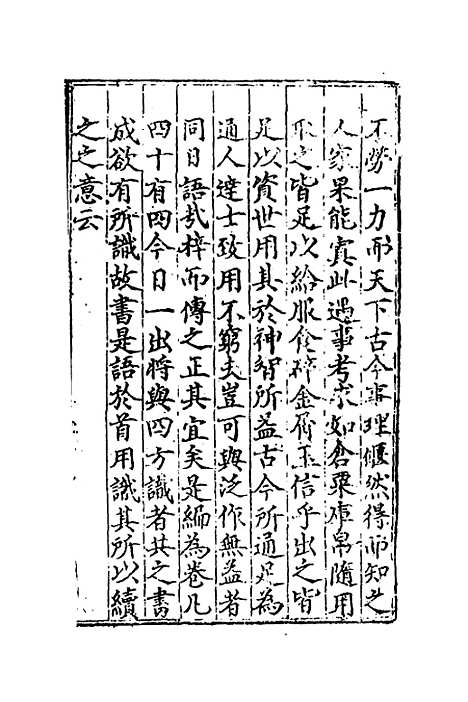 不勞一力而天下古今事理犂然得而知之
人家果能寘此遇事考求如倉粟庫帛隨用
取之皆足以給服食碎金屑玉信乎出之皆
足以資世用其於神智所益古今所通足為
通人達士致用不窮夫豈可與泛作無益者
同日語哉梓而傳之正其宜矣是編為卷凡
四十有四今日一出將與四方識者共之書
成欲有所識故書是語於首用識其所以續
之之意云